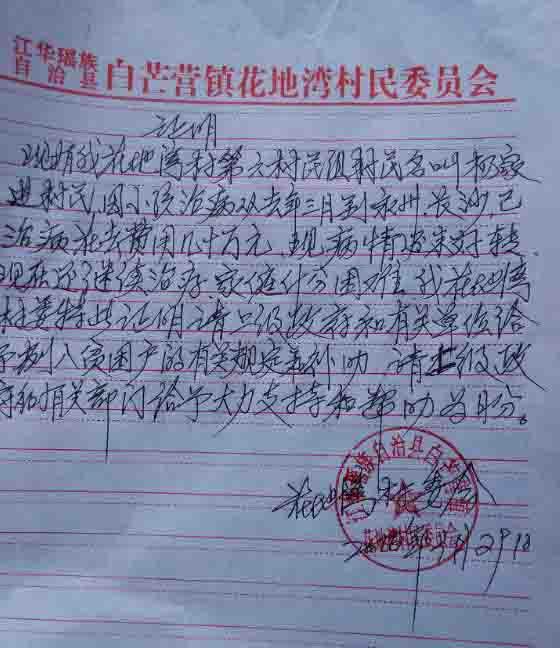 江华瑶族
自治县
白芒营镇花地湾村民委员会
证明
现有我花地湾村第六村民组村民名叫
进村民,因小孩治病从去年三月到永州.长沙,已
治病花去费用几十万元,现病情尚未好转.
现在还继续治疗,家徍什分困难,我花地湾
村委特此证明,请上级政府和有关单位给
予列入贫困户的有关规定和补助,请上级政
府和有关部门给予大力支持和帮助为盼。
花地湾村委会
29日